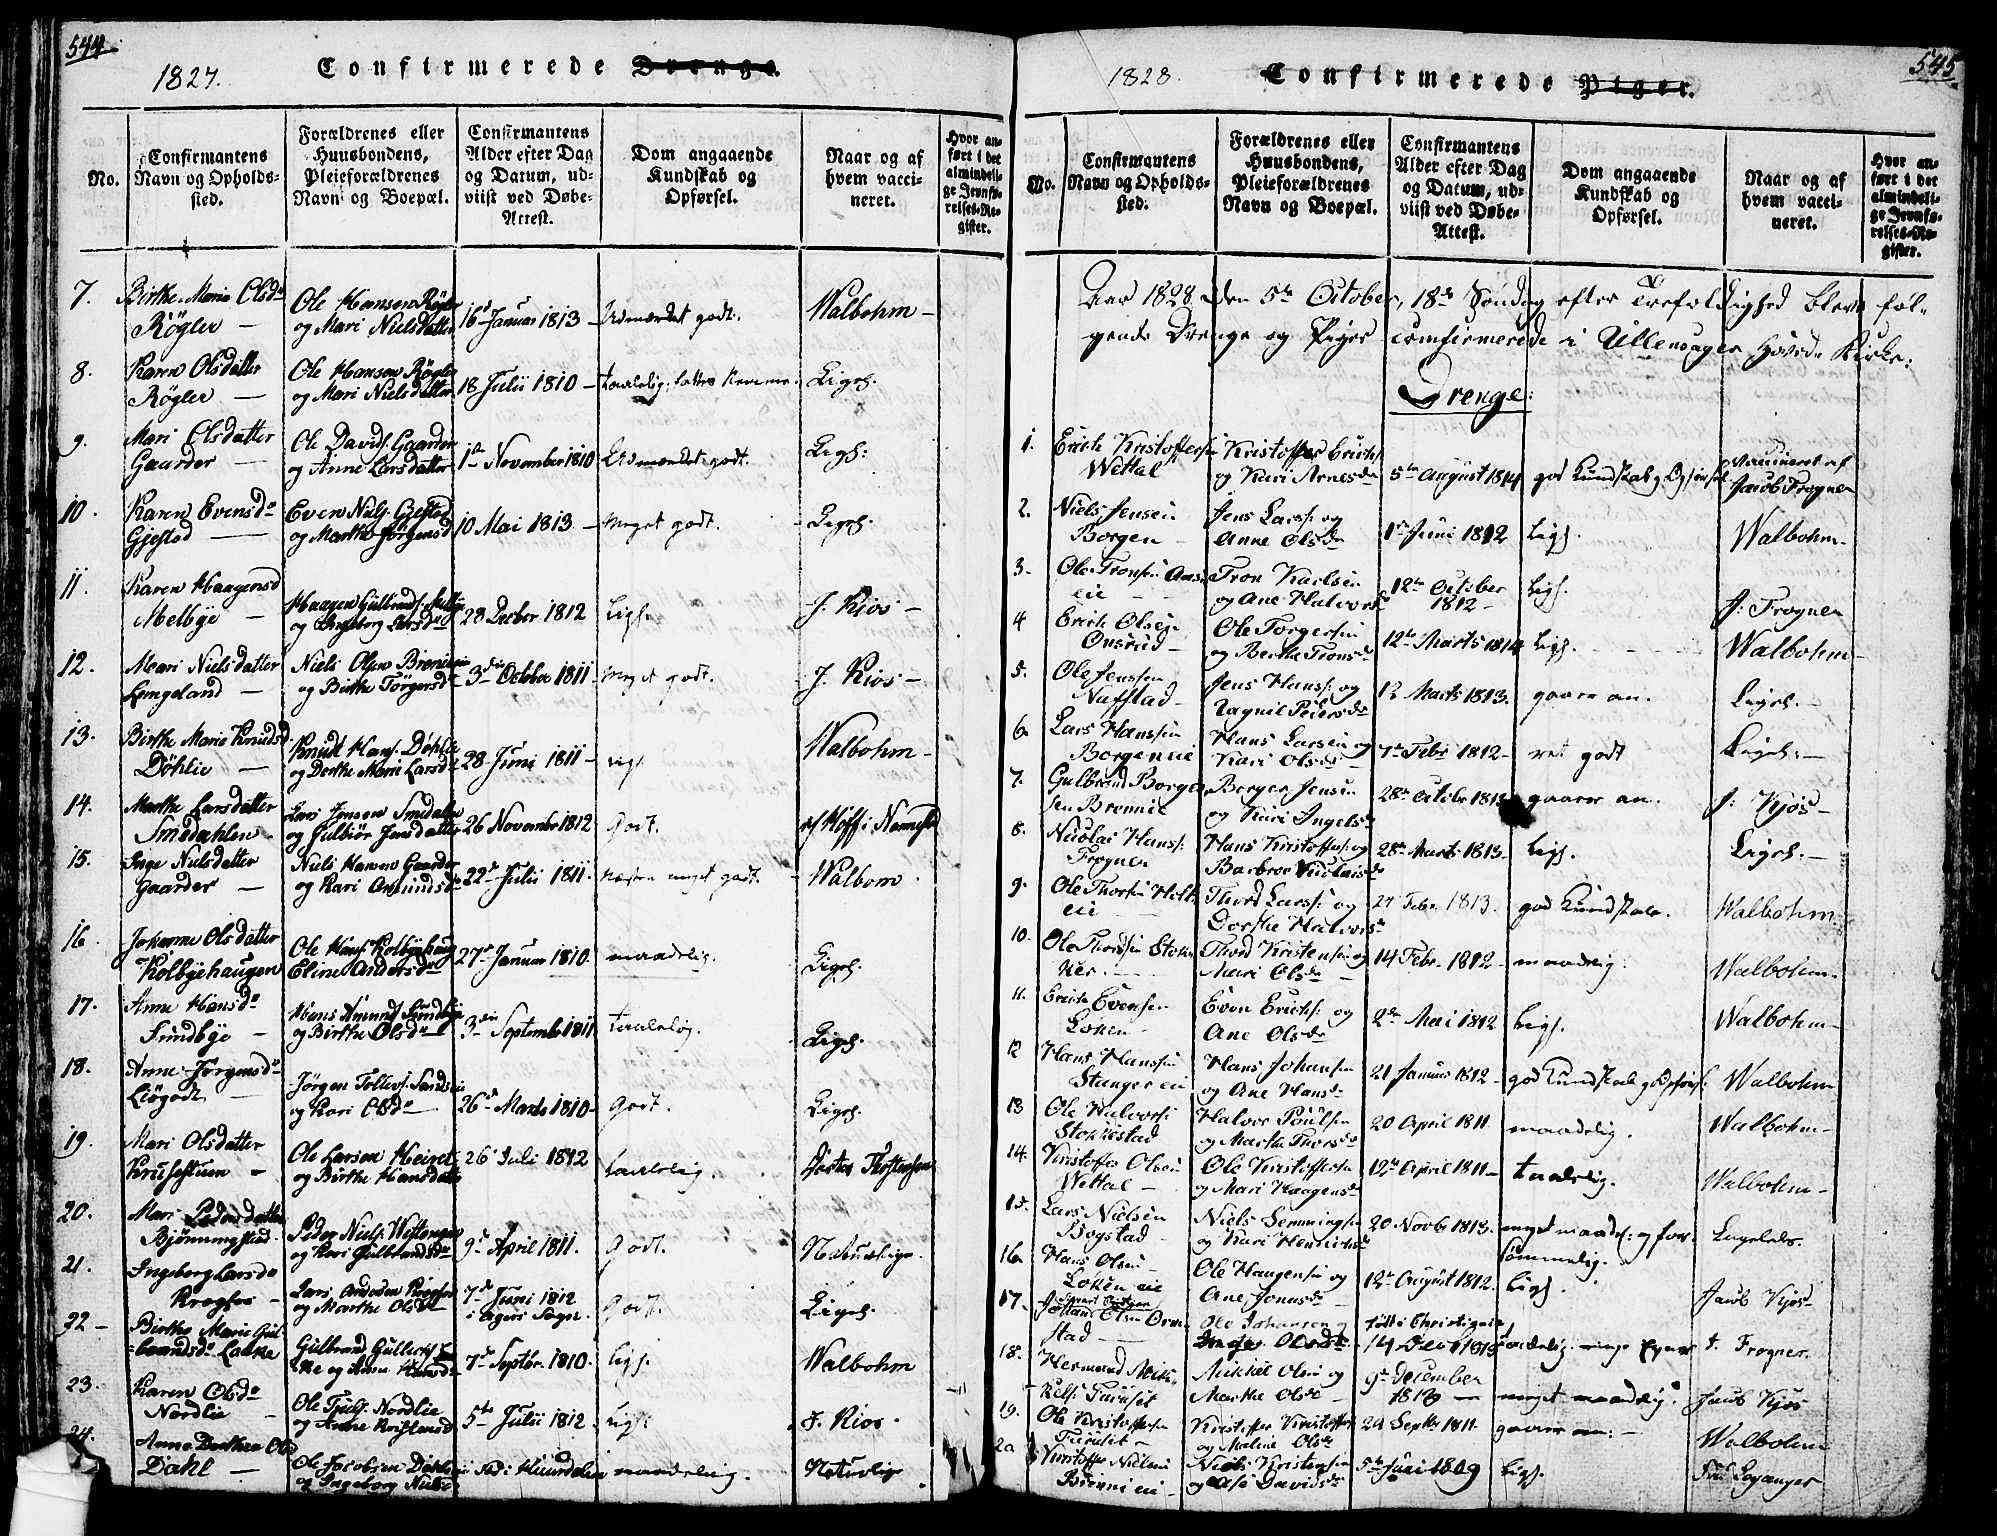 544
1827.
Confirmerede Drenge.
No.
Confirmantens Navn og Opholdssted.
Forældrenes eller Huusbondens, Pleieforældrenes Navn og Boepæl.
Confirmantens Alder efter Dag og Datum, udviist ved Døbe-Attest.
Dom angaaende Kundskab og Opførsel.
Naar og af hvem vaccineret.
Hvor anført i det almindelige Jevnførelses-Register.
7. Birthe Maria Olsdr Røgler — Ole Hansen Røgler og Mari Nielsdatter 16d Januar 1813 – Udmærket godt. Walbohm –
8. Karen Olsdatter Røgler — Ole Hansen Røgler og Mari Nielsdatter 18 Julii 1810 – Taalelig; Ligel.
9. Mari Olsdatter Gaarder — Ole Davids. Gaarder og Anne Larsdatter 1ste November 1810 Udmærket godt. Ligel:
10. Karen Evensdr Gjestad — Even Niels. Gjestad og Marthe Jørgensd 10 Mai 1813 – Meget godt. Ligel.
11. Karen Haagensd Melbye – Haagen Gulbrands. Melbye og Ingeborg Larsdr 28 Decber 1812 Ligs. J. Kios –
12. Mari Nielsdatter Langeland — Niels Olsen Brennien og Birthe Törgersdr 3die October 1811 – Meget godt. J. Kios –
13. Birthe Marie Knudsd. Döhlie — Knudt Hans. Döhlie og Dorthe Mari Larsdr 28 Juni 1811 – Ligs. Walbohm –
14. Marthe Larsdatter Smedahlen – Lars Jensen Smedahlen og Gulbiör Jensdatter 26 November 1812 Godt. af Hoff i Nannestad
15. Inge Nielsdatter Gaarder — Niels Hansen Gaarder og Kari Amundsdr 22de Julii 1811. Næsten meget godt. Walbom.
16. Johanne Olsdatter Kolbyehaugen Ole Hans. Kolbyehaug Eline Andersdr 27de Januar 1810. maadelig. Ligel.
17. Anne Hansdr Sundbye – Hans Amunds. Sundbye og Birthe Olsdr 3die September 1811 Taalelig. Ligel.
18. Anne Jörgensdr Liögodt – Jörgen Tollevs. Sandlie og Kari Olsdr — 26de Marts 1810 – Godt. Ligel.
19. Mari Olsdatter Krussestuen – Ole Larsen Heiret og Birthe Hansdatter 26d Juli 1812 Taalelig. Thostensen
20. Mari Pedersdatter Bjønningstad. Peder Niels. Wettengen og Kari Gulbrandsdr 9de April 1811. Godt. Naturlige.
21. Ingeborg Larsdr Kragfos – Lars Andersen Kragfos og Marthe Olsdr 7de Juni 1812 i Agers Sogn. Godt. Ligel.
22 – Birthe Marie Gulbrandsdr Lakke Gulbrand Gulbrands. Lakke og Anne Hansdr 7de Septbr. 1810. Ligs. Walbohm
23. Karen Olsdr Nordlie – Ole Truls. Nordlie og Anne Kristensd 5te Julii 1812. Ligs. J. Kios.
24. Anne Dorthea Olsd Dahl — Ole Jacobsen Dahlen og Ingeborg Niels. Föd i Hurdalen maadelig. Naturlig
545
1828.
Confirmerede Piger.
No.
Confirmantens Navn og Opholdssted.
Forældrenes eller Huusbondens, Pleieforældrenes Navn og Boepæl.
Confirmantens Alder efter Dag og Datum, udviist ved Døbe-Attest.
Dom angaaende Kundskab og Opførsel.
Naar og af hvem vaccineret.
Hvor anført i det almindelige Jevnførelses-Register.
Aar 1828 den 5te October, 18de Söndag efter Trefoldighed blev føl-
gende Drenge og Piger confirmerede i Ullensager Hoved Kirke:
Drenge:
1. Erich Kristoffersen Wettal Kristoffer Erichs. og Kari Arnesdr 5te August 1814 god Kundskab og Opførsel Vaccineret af Jacob Frogner
2. Niels Jensen Borgen – Jens Larss: og Anne Olsdr 1ste Juni 1812 Ligs. Walbohm –
3. Ole Tronsen Aaseie – Tron Karlsen og Ane Halvorsd 12te October 1812 – Ligs. J. Frogner
4 Erich Olsen Onsrud – Ole Torgersen og Berthe Tronsdr 12te Marts 1814 Ligs. Walbohm –
5. Ole Jenssen Nafstad – Jens Hans: og Ragnil Pedersdr 12 Marts 1813. gaaer an. Ligel. –
6. Lars Hanssen Borgen eie Hans Larsen og Kari Olsdr 7de Febr 1812 – ret godt Ligel: –
7. Gulbrand Borgersen Brennie Borger Jensen og Kari Ingelsdr 28de Octobr 1813 gaaer an. J. Kjös –
8. Nicolai Hans: Frogner Hans Kristoffers: og Barbroe Nicolaisdr 28de Marts 1813. Ligs. Ligel. –
9. Ole Thorsen Holteie – Thord Larss: og Dorthe Halvorsdr 27 Febr. 1813. god Kundskab. Walbohm –
10. Ole Thordsen Stokner – Thord Kristensen og Mari Olsdr – 14 Febr. 1812 – maadelig. Walbohm –
11. Erich Evensen Loken – Even Erichs: og Ane Olsdr 2den Mai 1812 Ligs. Walbohm –
12 Hans Hanssen Stanger eie Hans Johansen og Ane Hansdr 21 Januar 1812 – god Kundskab god Opførsel. Walbohm
13 Ole Halvors: Stokkestad Halvor Poulsen og Marthe Thorsdr 20 April 1811 maadelig. Walbohm –
14. Kristoffer Olsen Wettal – Ole Kristoffersen og Mari Haagensdr 12te April 1811 – taalelig. Walbohm –
15. Lars Nielsen Bogstad – Niels Semmingsen og Kari Henrichsdr 20 Novbr 1813. meget maadel: og forsömmelig.
16 Hans Olsen Loken eie Ole Haugensen og Ane Jonasdr 12te August 1812. Ligs. Jacob Kjos –
17. Johan Olsen Ormstad — Ole Johansen og Inger Olsdr. Född i Christiania 14 Decbr 1813 maadelig. J. Frogner.
18. Hermand Mikkels: Furuset Mikkel Olsen og Marthe Olsdr 9de December 1810 — meget maadelig. Jacob Kjös
19. Ole Kristoffersen Furuset – Kristoffer Kristoffers: og Malene Olsdr 29 Septbr 1811 gaaer an: – Walbohm
20 Kristoffer Nielsen Brenni eie – Niels Kristensen og Åse Davidsdr 5te Juni 1809 Ligs.